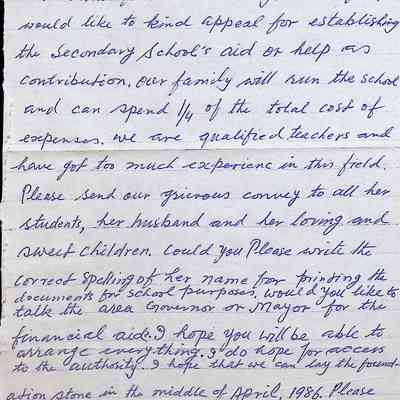 would like to kind appeal for establishing
the Secondary School's aid or help as
contribution. Our family will run the school
and can spend 1/4 of the total cost of
expenses. we are qualified teachers and
have got too much experienc in this field.
Please send our grievous convey to all her
students, her husband and her loving and
sweet children. Could you Please write the
correct spelling of her name for printing the
documents for school purposes. would you like to
talk the area Governor or Mayor for the
financial aid. I hope you will be able to
arrange everything. I do hope for access
to the authority. I hope that we can lay the found-
ation stone in the middle of April, 1986. Please